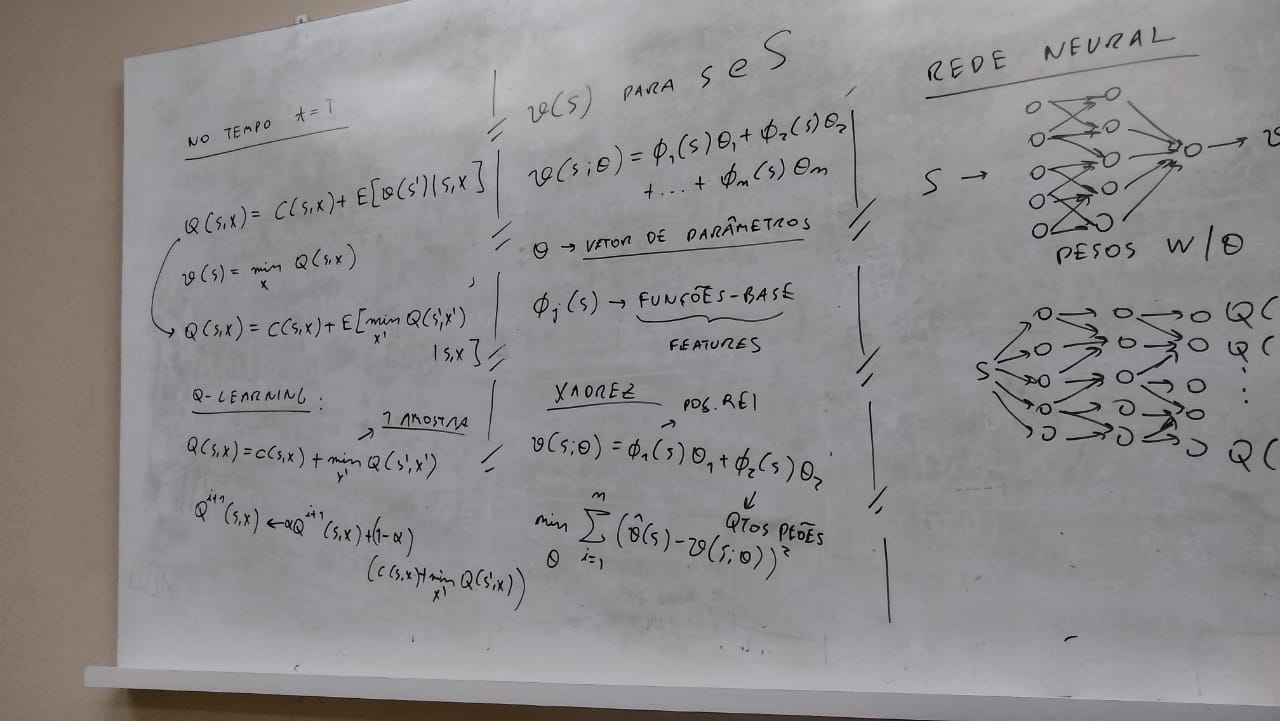 NO TEMPO t=T
Q(s,x) = C(s,x) + E[v(s')|s,x]
v(s) = min Q(s,x)
x
Q(s,x) = C(s,x) + E[min Q(s',x')
x'
|s,x]
Q-LEARNING:
1 AMOSTRA
Q(s,x) = c(s,x) + min Q(s',x')
x'
Q^{i+1}(s,x) ← αQ^{i+1}(s,x) + (1-α)
(C(s,x) + min Q(s',x))
x'
v(s) PARA s e S
v(s;θ) = ϕ₁(s)θ₁ + ϕ₂(s)θ₂
+...+ ϕₘ(s)θₘ
θ → VETOR DE PARÂMETROS
ϕⱼ(s) → FUNÇÕES-BASE
FEATURES
XADREZ
POS. REI
v(s;θ) = ϕ₁(s)θ₁ + ϕ₂(s)θ₂
QTOS PEÕES
n
min Σ (v̂(s) - v(s;θ))²
θ i=1
REDE NEURAL
S → → v
PESOS W/θ
S Q(
Q(
⋮
Q(